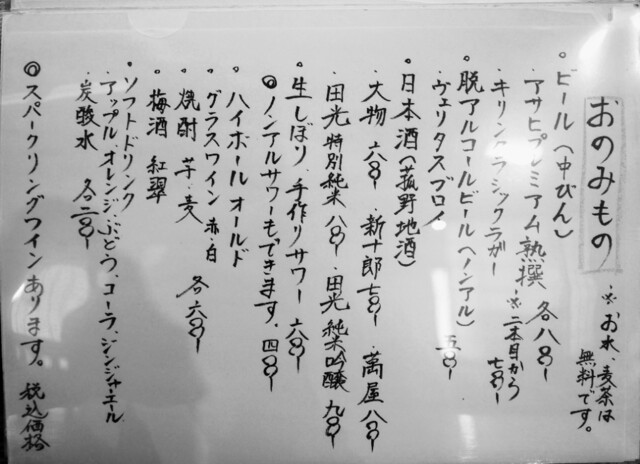 おのみもの
※お水、麦茶は
無料です。
・ビール(中びん)
・アサヒプレミアム熟撰 各八〇〇-
・キリンクラシックラガー ※二本目から七〇〇-
・脱アルコールビール(ノンアル)
・ヴェリタスブロイ 五〇〇-
・日本酒(菰野地酒)
・大物 六〇〇- ・新十郎 七〇〇- ・萬屋 八〇〇-
・田光特別純米 八〇〇- ・田光純米吟醸 九〇〇-
・生しぼり、手作りサワー 六〇〇-
◎ノンアルサワーもできます。四〇〇-
・ハイボール オールド
・グラスワイン 赤・白
・焼酎 芋・麦 各六〇〇-
・梅酒 紅翠
・ソフトドリンク
・アップル、オレンジ、ぶどう、コーラ、ジンジャエール
・炭酸水 各三〇〇-
◎スパークリングワインあります。 税込価格